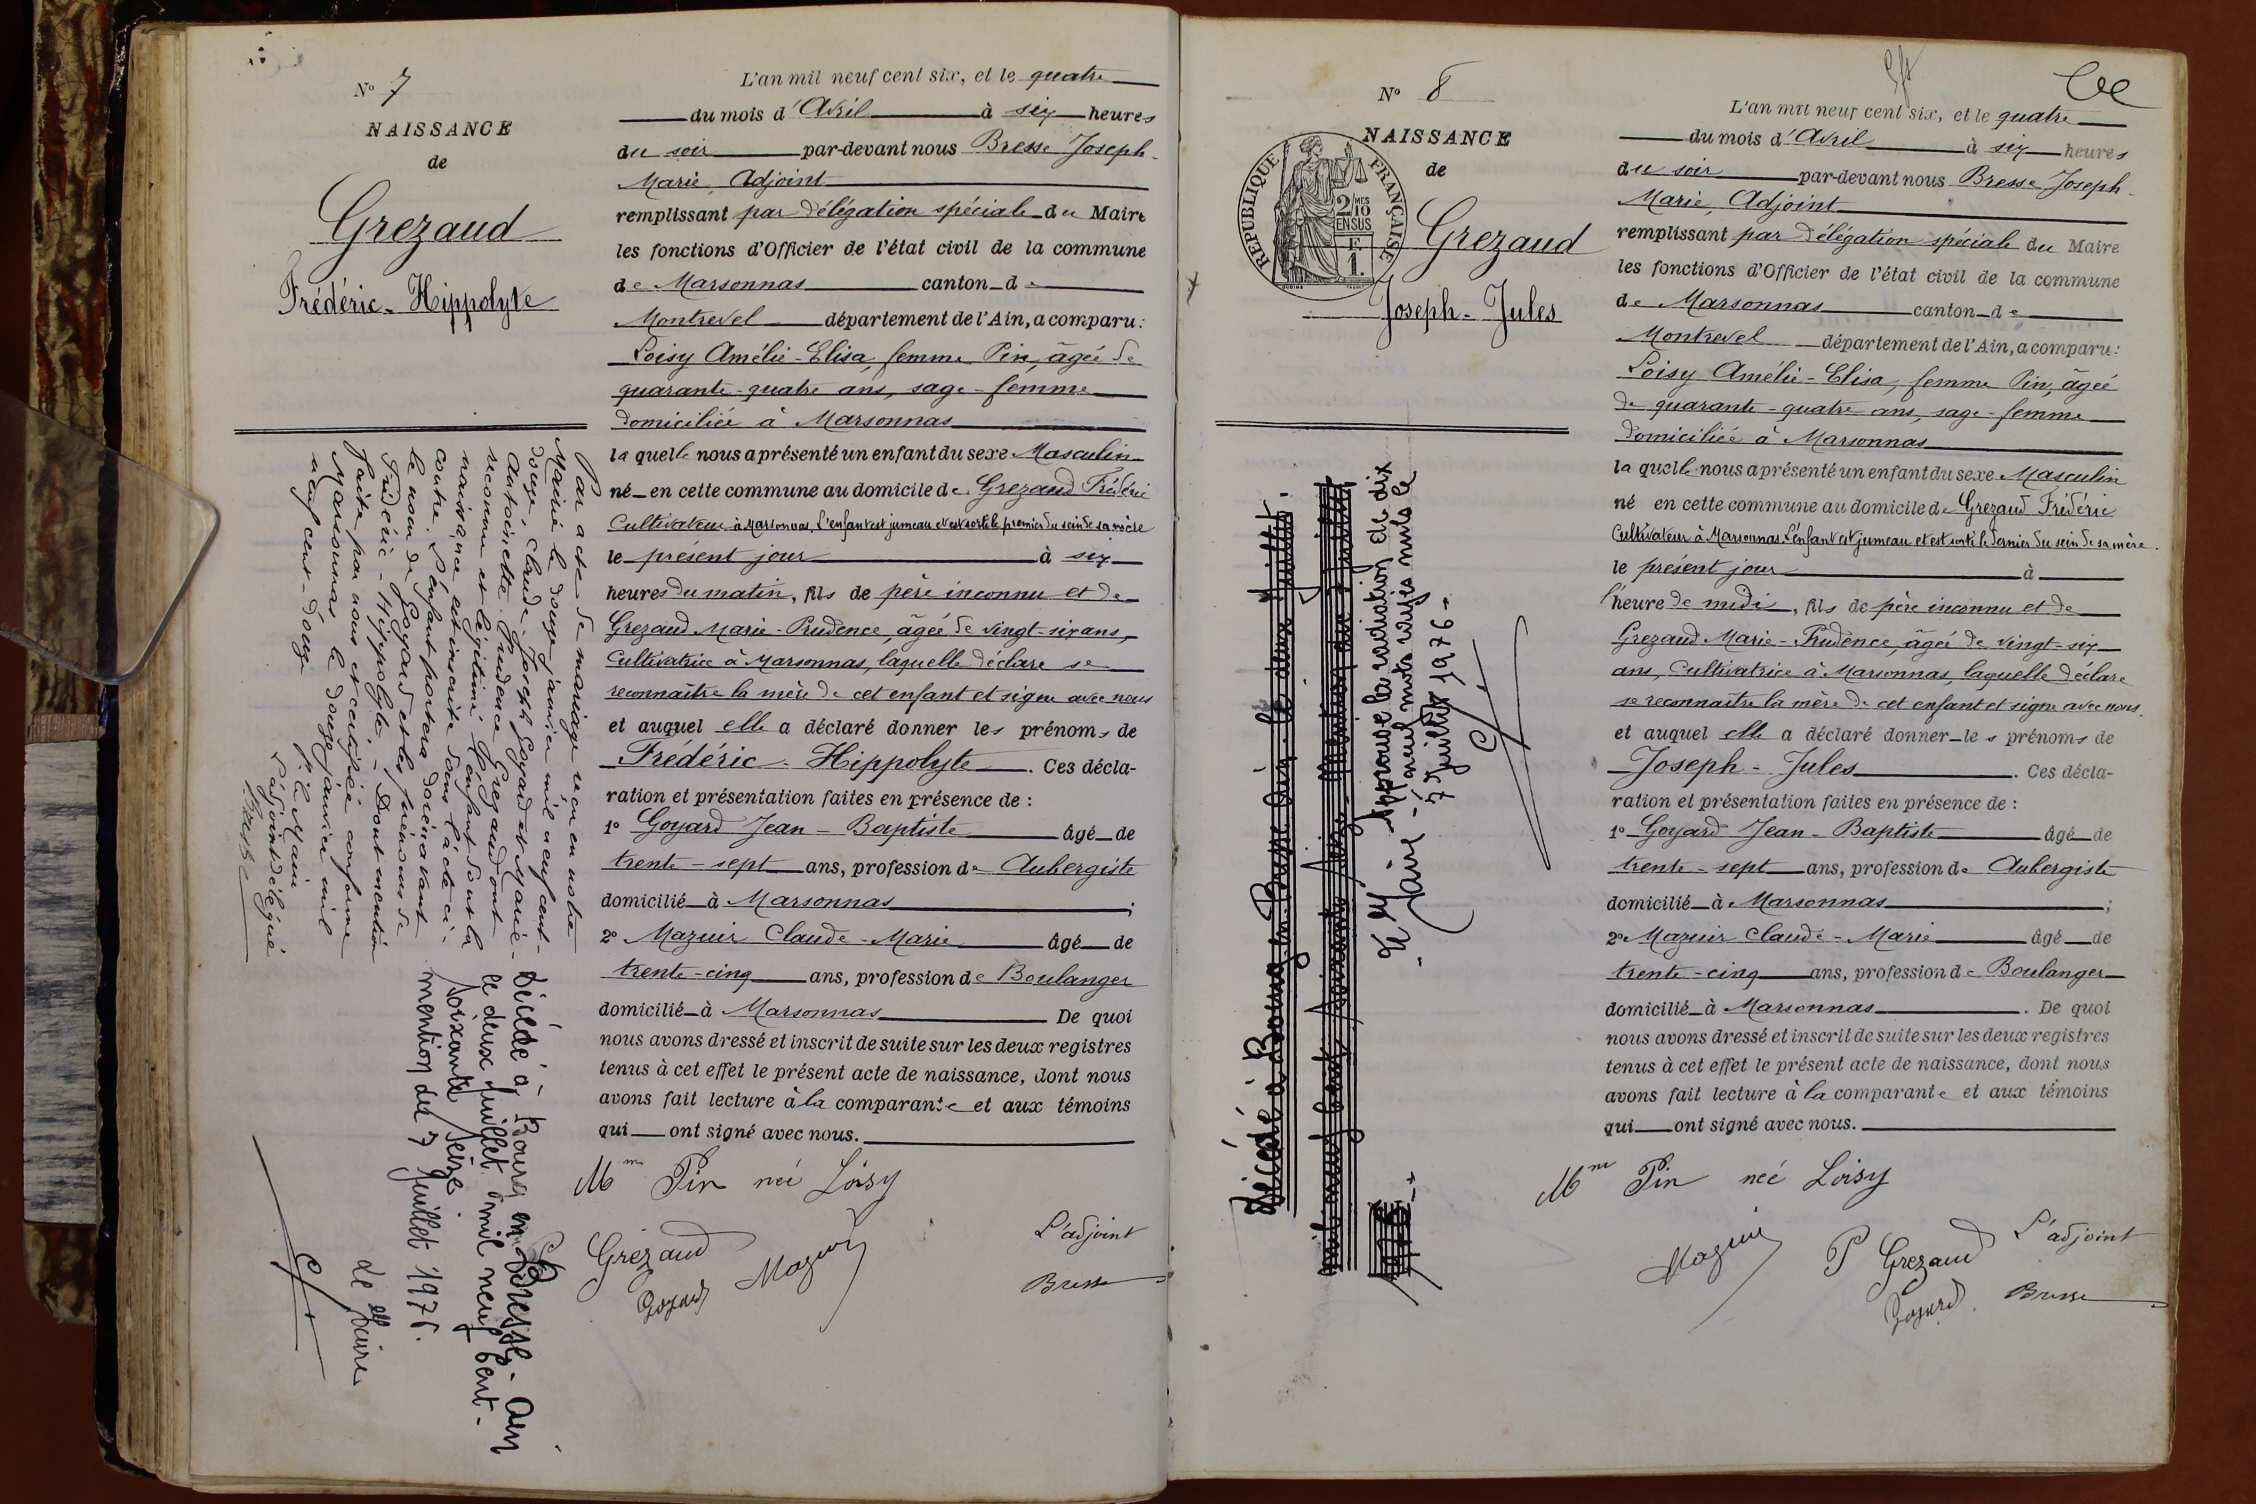 N° 7
NAISSANCE
de
Grezaud
Frédéric-Hippolyte
L'an mil neuf cent six, et le quatre
du mois d'Avril à six heures
du soir par-devant nous Bresse Joseph-
Marie, Adjoint
remplissant par délégation spéciale du Maire
les fonctions d'Officier de l'état civil de la commune
de Marsonnas canton de
Montrevel département de l'Ain, a comparu:
Loisy Amélie-Elisa, femme Pin, âgée de
quarante-quatre ans, sage-femme
domiciliée à Marsonnas
laquelle nous a présenté un enfant du sexe Masculin
né en cette commune au domicile de Grezaud Frédéric
Cultivateur à Marsonnas, l'enfant est jumeau et est sorti le premier du sein de sa mère
le présent jour à six
heures du matin, fils de père inconnu et de
Grezaud Marie-Prudence, âgée de vingt-six ans,
Cultivatrice à Marsonnas, laquelle déclare se
reconnaître la mère de cet enfant et signe avec nous
et auquel elle a déclaré donner les prénoms de
Frédéric-Hippolyte. Ces décla-
ration et présentation faites en présence de :
1° Goyard Jean-Baptiste âgé de
trente-sept ans, profession de Aubergiste
domicilié à Marsonnas ;
2° Mazuir Claude-Marie âgé de
trente-cinq ans, profession de Boulanger
domicilié à Marsonnas De quoi
nous avons dressé et inscrit de suite sur les deux registres
tenus à cet effet le présent acte de naissance, dont nous
avons fait lecture à la comparante et aux témoins
qui ont signé avec nous.
Mme Pin née Loisy
Grezaud
Goyard
Mazuir
L'adjoint
Bresse
Par acte de mariage reçu en notre
Mairie le douze janvier mil neuf cent-
douze, Claude-Joseph Goyard et Marie-
Antoinette-Prudence Grezaud ont
reconnu et légitimé l'enfant dont la
naissance est inscrite dans l'acte ci-
contre. L'enfant portera dorénavant
le nom de Goyard et les prénoms de
Frédéric-Hippolyte. Dont mention
faite par nous et certifiée conforme
Marsonnas le douze janvier mil
neuf cent-douze
P. le Maire
l'adjoint délégué
Bresse
Décédé à Bourg en Bresse-Ain
le deux juillet mil neuf cent-
soixante seize.
mention du 7 juillet 1976.
Le Maire
N° 8
NAISSANCE
de
Grezaud
Joseph-Jules
REPUBLIQUE FRANÇAISE
2/10 MES
EN SUS
F.
1.
L'an mil neuf cent six, et le quatre
du mois d'Avril à six heures
du soir par-devant nous Bresse Joseph-
Marie, Adjoint
remplissant par délégation spéciale du Maire
les fonctions d'Officier de l'état civil de la commune
de Marsonnas canton de
Montrevel département de l'Ain, a comparu:
Loisy Amélie-Elisa, femme Pin, âgée
de quarante-quatre ans, sage-femme
domiciliée à Marsonnas
laquelle nous a présenté un enfant du sexe Masculin
né en cette commune au domicile de Grezaud Frédéric
Cultivateur à Marsonnas. L'enfant est jumeau et est sorti le dernier du sein de sa mère.
le présent jour à
l'heure de midi, fils de père inconnu et de
Grezaud Marie-Prudence, âgée de vingt-six
ans, Cultivatrice à Marsonnas, laquelle déclare
se reconnaître la mère de cet enfant et signe avec nous.
et auquel elle a déclaré donner les prénoms de
Joseph-Jules. Ces décla-
ration et présentation faites en présence de :
1° Goyard Jean-Baptiste âgé de
trente-sept ans, profession de Aubergiste
domicilié à Marsonnas ;
2° Mazuir Claude-Marie âgé de
trente-cinq ans, profession de Boulanger
domicilié à Marsonnas. De quoi
nous avons dressé et inscrit de suite sur les deux registres
tenus à cet effet le présent acte de naissance, dont nous
avons fait lecture à la comparante et aux témoins
qui ont signé avec nous.
Mme Pin née Loisy
Mazuir
P Grezaud
Goyard
L'adjoint
Bresse
Décédé à Bourg en Bresse-Ain. le deux juillet.
mil neuf cent soixante seize. Mention du 7 juillet
Approuvé la radiation de dix
mots rayés nuls le
7 juillet 1976-
Le Maire-